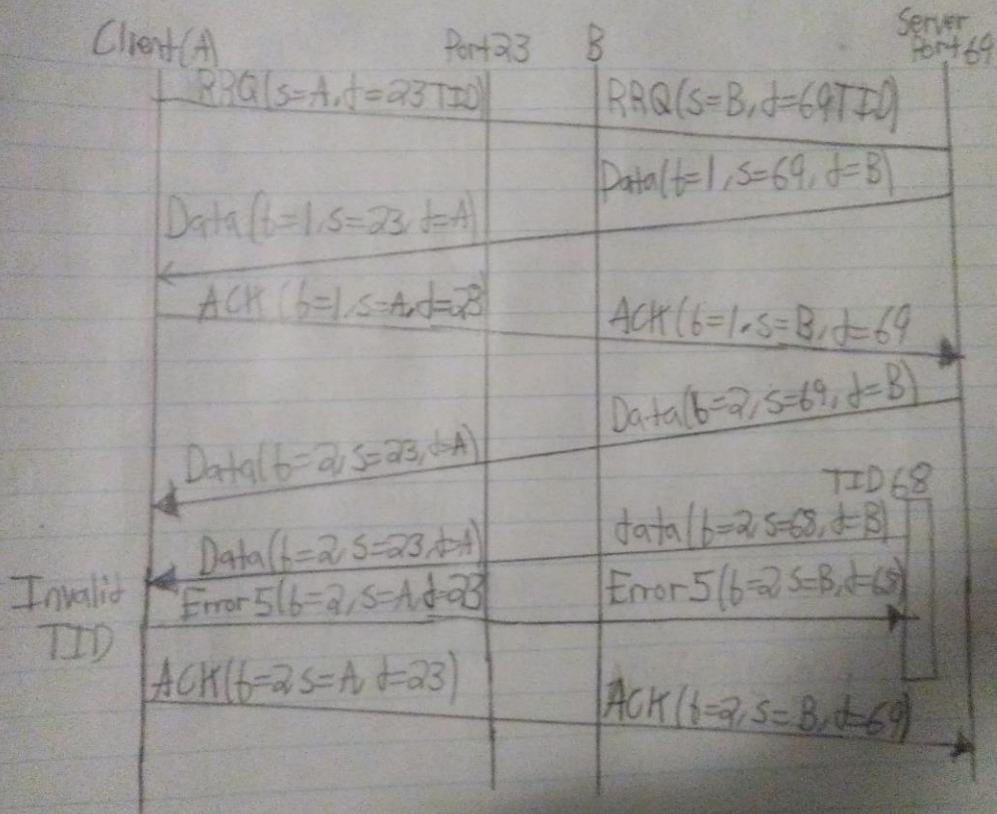 Client(A)
Port23
B
Server
Port69
RRQ(s=A,d=23TID)
RRQ(s=B,d=69TID)
Data(b=1,s=69,d=B)
Data(b=1,s=23,d=A)
ACK(b=1,s=A,d=23
ACK(b=1,s=B,d=69
Data(b=2,s=69,d=B)
Data(b=2,s=23,d=A)
TID68
data(b=2,s=68,d=B)
Data(b=2,s=23,d=A)
Invalid
TID
Error5(b=2,s=A,d=23
Error5(b=2,s=B,d=68)
ACK(b=2,s=A,d=23)
ACK(b=2,s=B,d=69)